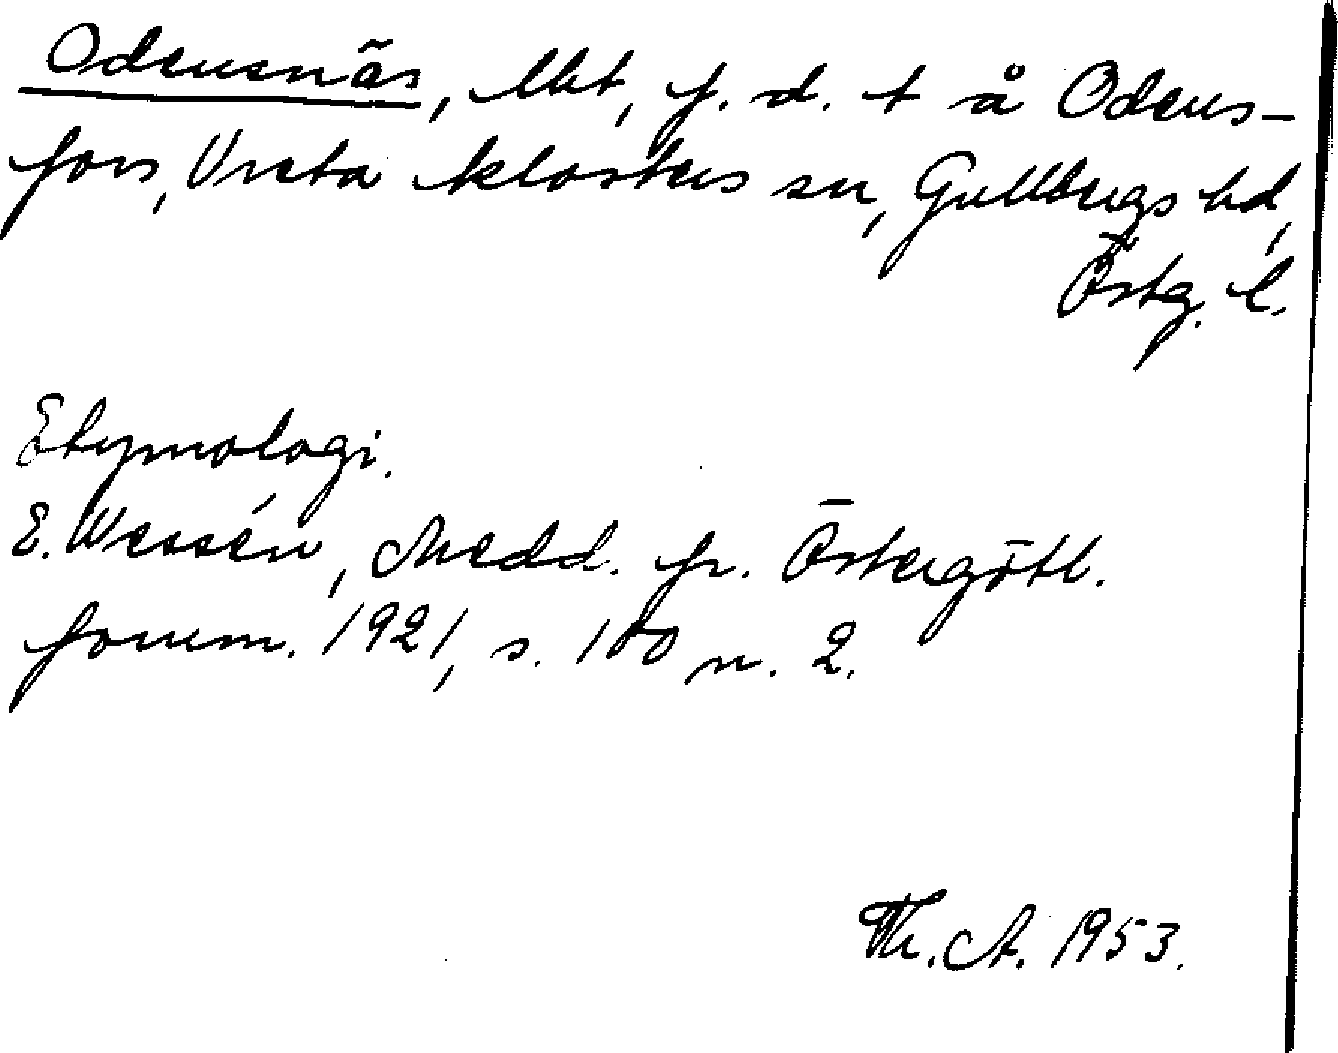 Odensnäs, lht, f. d. t å Odens-
fors, Vreta klosters sn, Gullbergs hd,
Östg. l.
Etymologi.
E. Wessén, Medd. fr. Östergötl.
fornm. 1921, s. 100 n. 2.
Th. A. 1953.